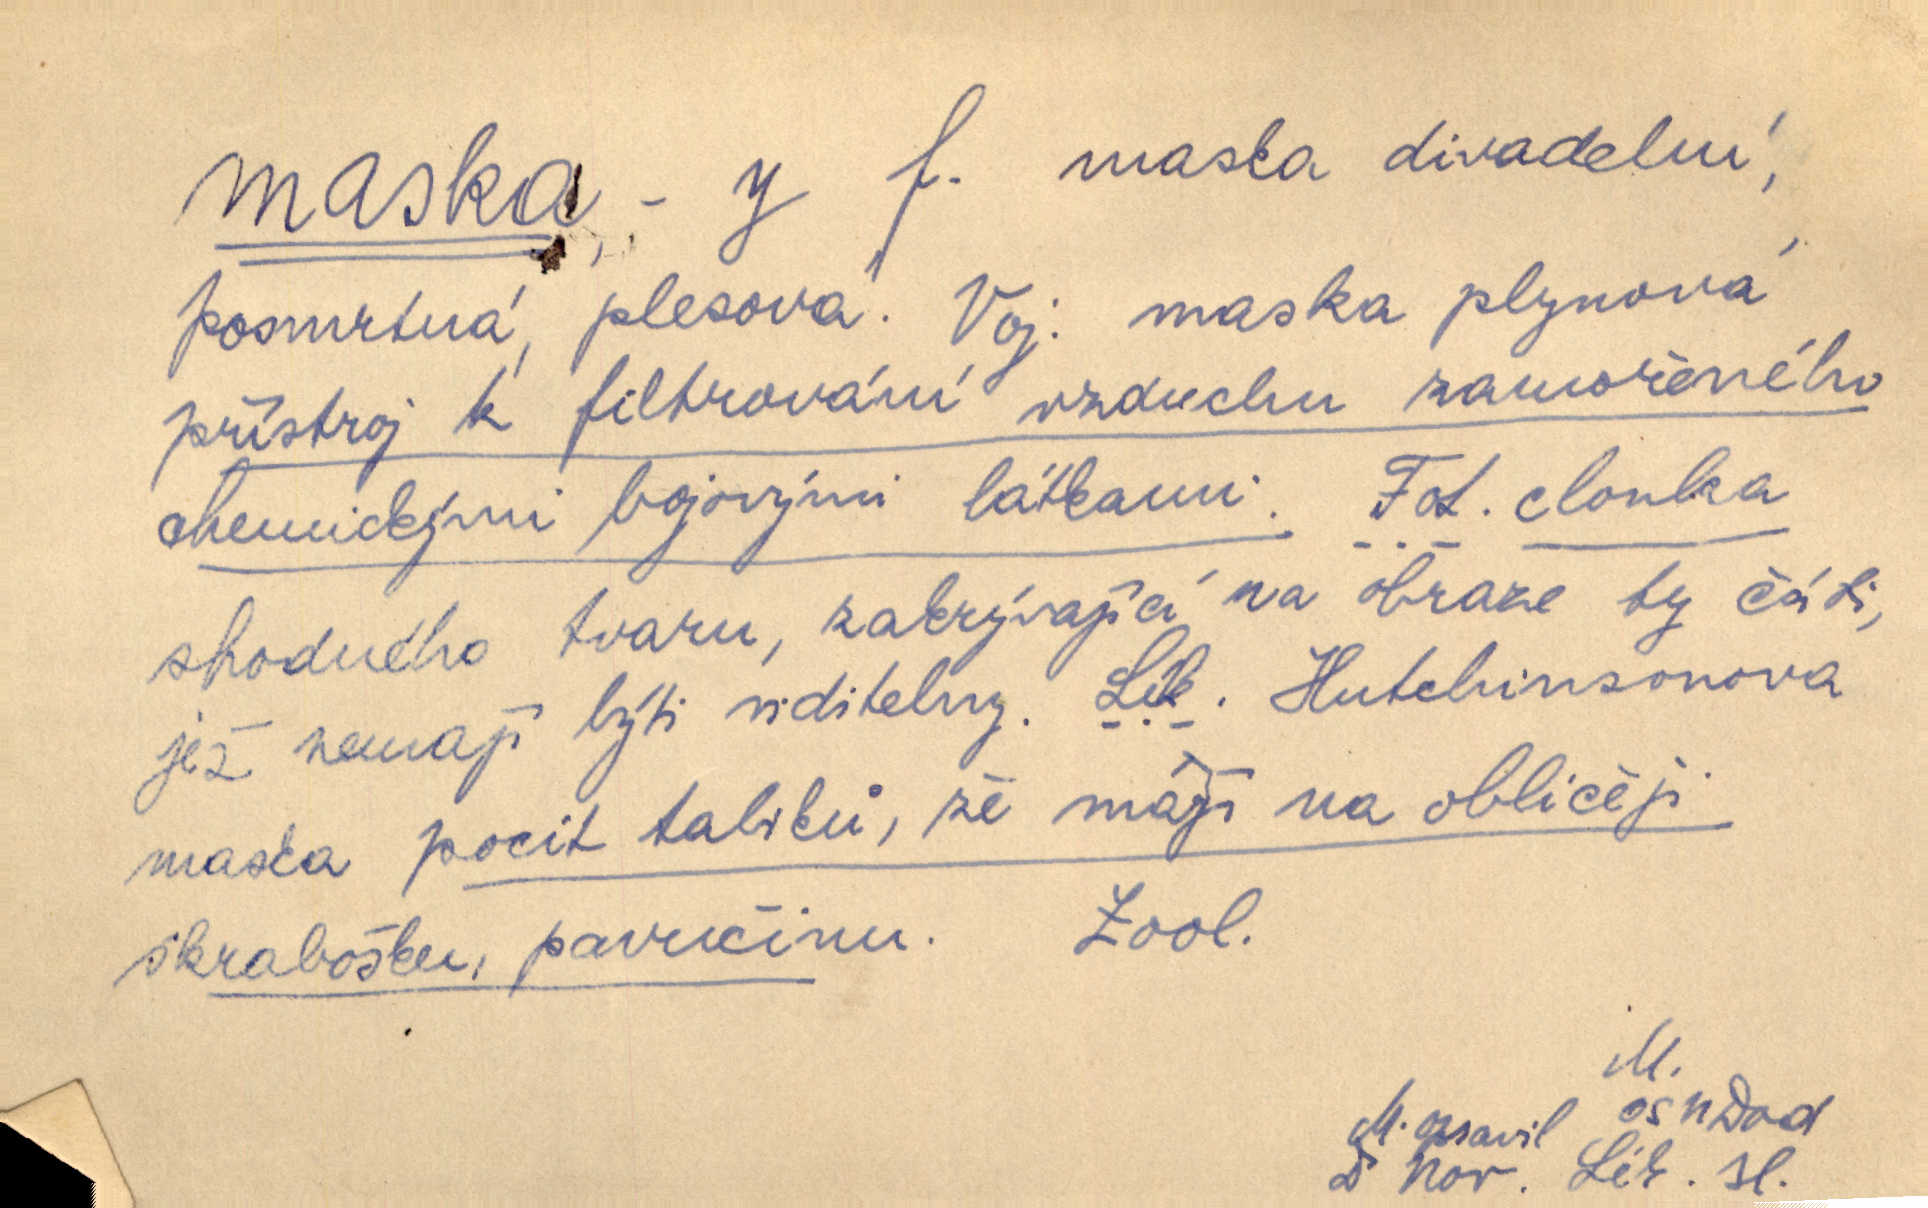 maska, -y f. maska divadelní,
posmrtná, plesová. Voj. maska plynová,
přístroj k filtrování vzduchu zamořeného
chemickými bojovými látkami. Fot. clonka
shodného tvaru, zakrývající na obraze ty části,
jež nemají býti viditelny. Lék. Hutchinsonova
maska pocit tabiků, že mají na obličeji
škrabošku, pavučinu. Zool.
M.
M. opravil OSNDod
D Nov. Lék. sl.